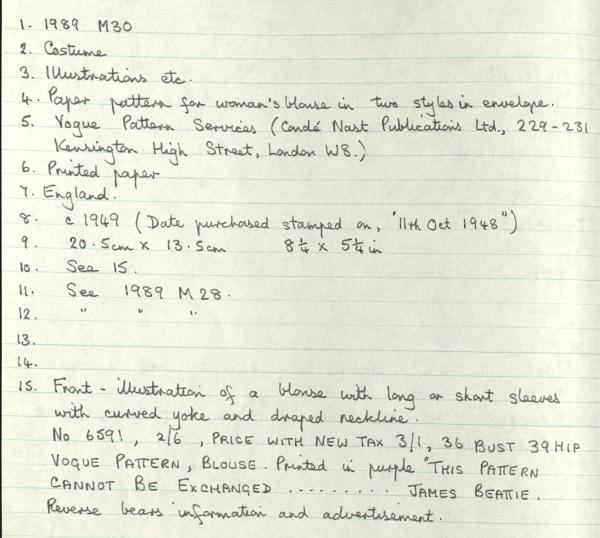 1. 1989 M30
2. Costume
3. Illustrations etc.
4. Paper pattern for woman's blouse in two styles in envelope.
5. Vogue Pattern Services (Condé Nast Publications Ltd., 229-231
Kensington High Street, London W8.)
6. Printed paper
7. England.
8. c 1949 (Date purchased stamped on, "11th Oct 1948")
9. 20.5cm x 13.5cm 8¼ x 5¼ in
10. See 15.
11. See 1989 M28.
12. " " "
13.
14.
15. Front - illustration of a blouse with long or short sleeves
with curved yoke and draped neckline.
No 6591, 2/6, PRICE WITH NEW TAX 3/1, 36 BUST 39 HIP
VOGUE PATTERN, BLOUSE. Printed in purple "THIS PATTERN
CANNOT BE EXCHANGED .......... JAMES BEATTIE.
Reverse bears information and advertisement.